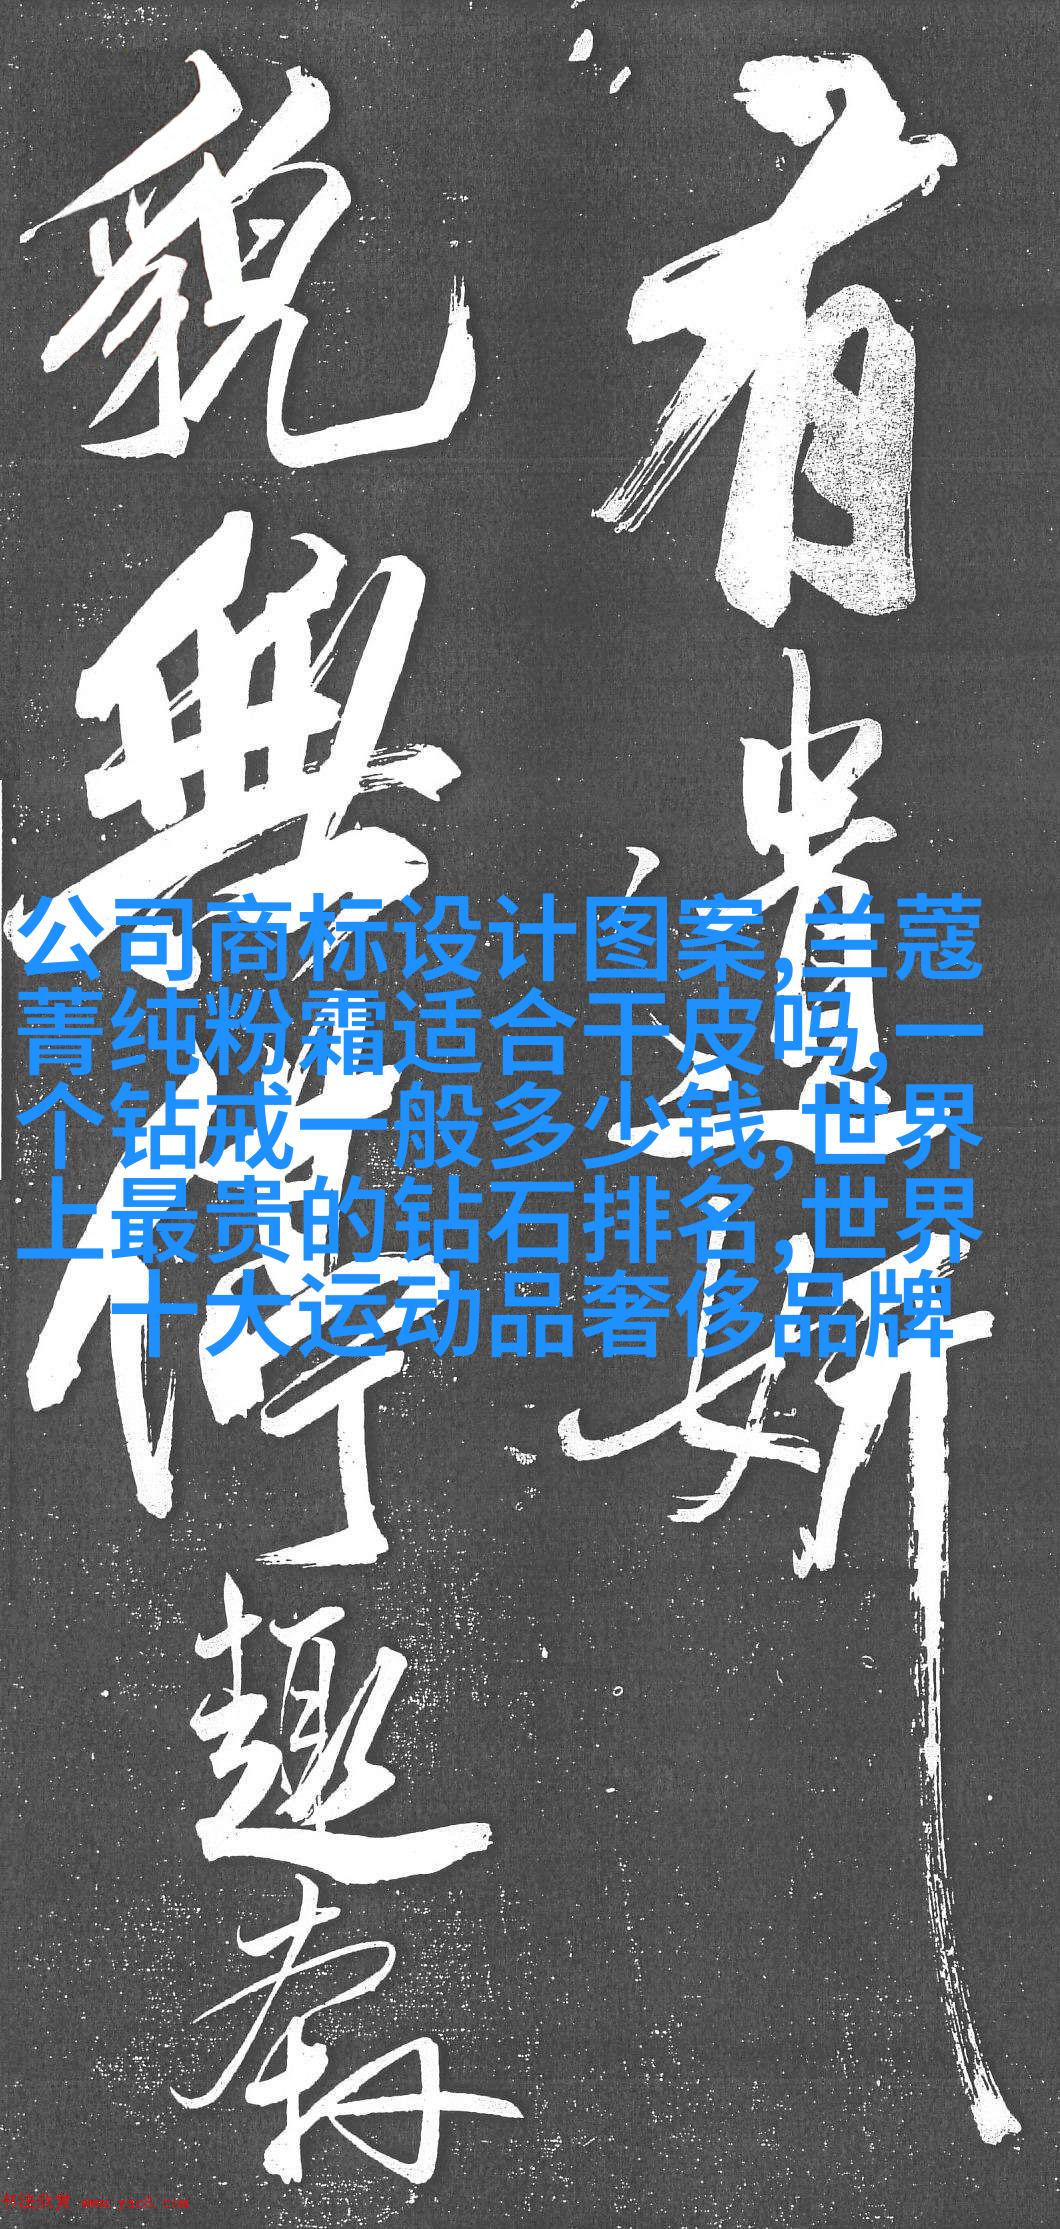 有遗妍
貌無停趣
公司商标设计图案,兰蔻
菁纯粉霜适合干皮吗,一
个钻戒一般多少钱,世界
上最贵的钻石排名,世界
十大运动品奢侈品牌